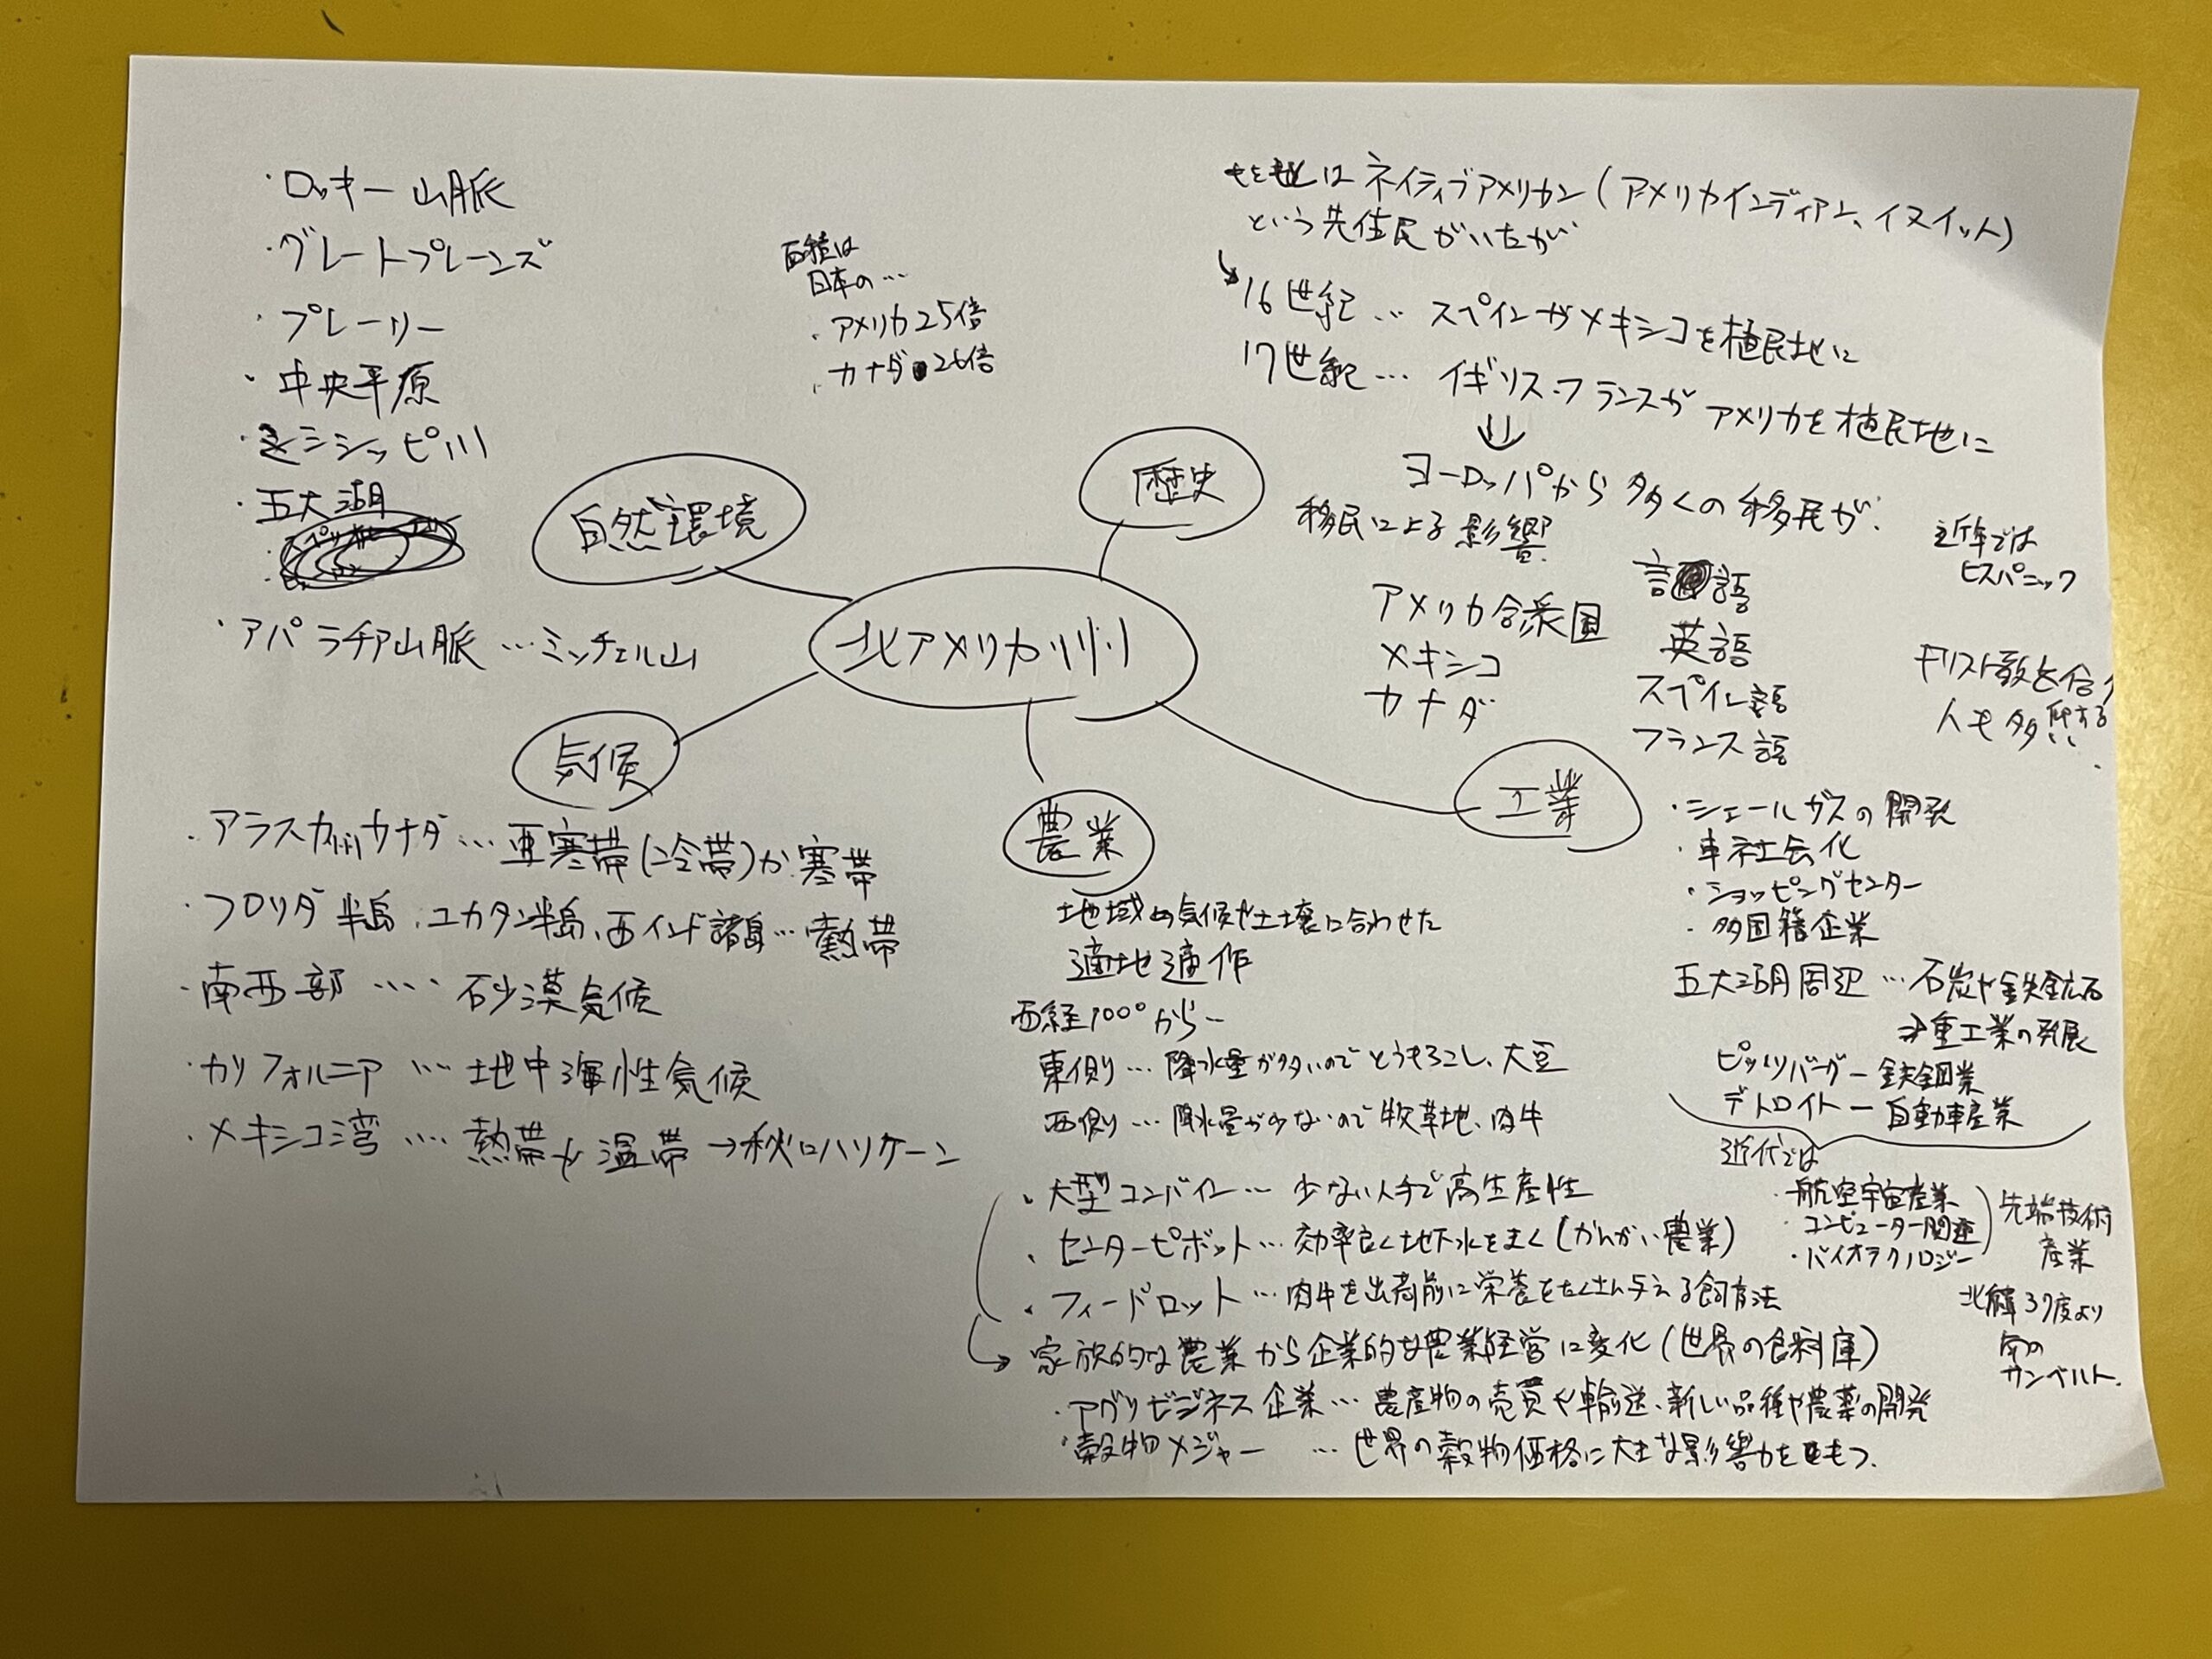 ・ロッキー山脈
・グレートプレーンズ
・プレーリー
・中央平原
・ミシシッピ川
・五大湖
・アパラチア山脈…ミッチェル山
面積は
日本の…
・アメリカ25倍
・カナダ 26倍
自然環境
歴史
は ネイティブアメリカン(アメリカインディアン、イヌイット)
という先住民がいたが
↳16世紀… スペインがメキシコを植民地に
17世紀… イギリス・フランスがアメリカを植民地に
⇓
ヨーロッパから多くの移民が.
移民による影響
アメリカ合衆国
メキシコ
カナダ
言語
英語
スペイン語
フランス語
近年では
ヒスパニック
キリスト教を信
仰する
人も多い.
北アメリカ州
気候
・アラスカ州カナダ…亜寒帯(冷帯)か寒帯
・フロリダ半島、ユカタン半島、西インド諸島…熱帯
・南西部 …. 砂漠気候
・カリフォルニア … 地中海性気候
・メキシコ湾 …. 熱帯や温帯→秋にハリケーン
農業
地域の気候や土壌に合わせた
適地適作
西経100°から
東側…降水量が多いのでとうもろこし、大豆
西側…降水量が少ないので牧草地、肉牛
・大型コンバイン… 少ない人手で高生産性
・センターピボット…効率良く地下水をまく(かんがい農業)
・フィードロット…肉牛を出荷前に栄養をたくさん与える飼育法
→家族的な農業から企業的な農業経営に変化(世界の食料庫)
・アグリビジネス企業…農産物の売買や輸送、新しい品種や農薬の開発
・穀物メジャー …世界の穀物価格に大きな影響力をもつ.
工業
・シェールガスの開発
・車社会化
・ショッピングセンター
・多国籍企業
五大湖周辺…石炭や鉄鉱石
→重工業の発展
ピッツバーグー鉄鋼業
デトロイトー自動車産業
近代では
・航空宇宙産業
・コンピューター関連
・バイオテクノロジー
先端技術
産業
北緯37度より
南の
サンベルト.